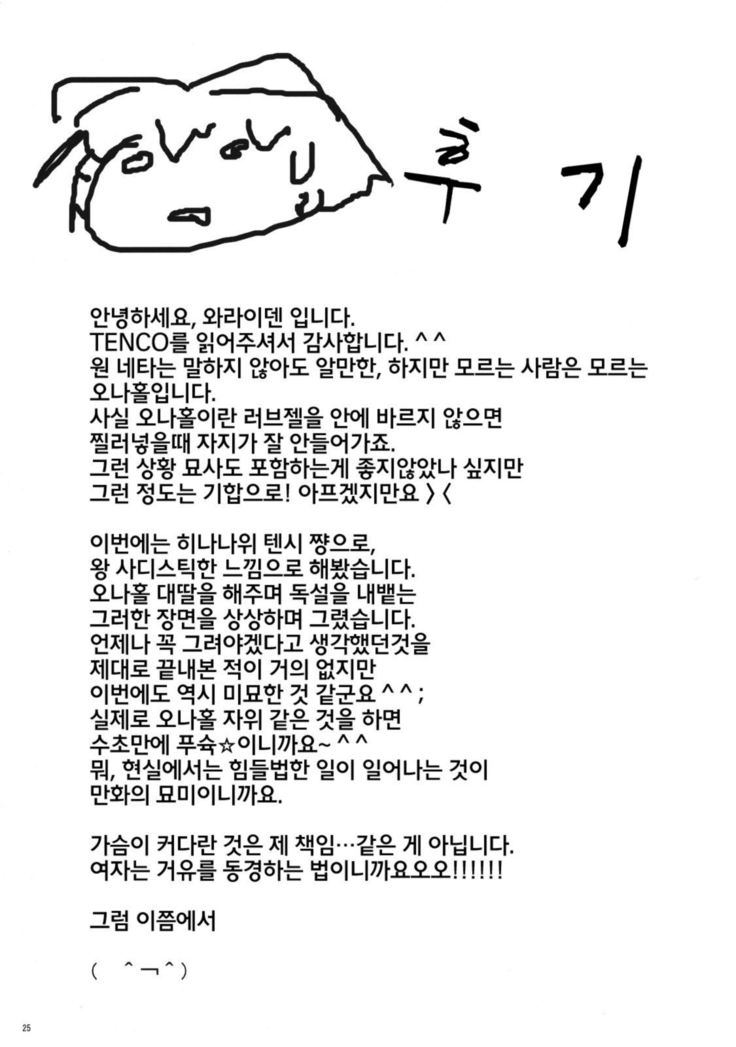 후기
안녕하세요, 와라이덴 입니다.
TENCO를 읽어주셔서 감사합니다. ^ ^
원 네타는 말하지 않아도 알만한, 하지만 모르는 사람은 모르는
오나홀입니다.
사실 오나홀이란 러브젤을 안에 바르지 않으면
찔러넣을때 자지가 잘 안들어가죠.
그런 상황 묘사도 포함하는게 좋지않았나 싶지만
그런 정도는 기합으로! 아프겠지만요 〉〈
이번에는 히나나위 텐시 쨩으로,
왕 사디스틱한 느낌으로 해봤습니다.
오나홀 대딸을 해주며 독설을 내뱉는
그러한 장면을 상상하며 그렸습니다.
언제나 꼭 그려야겠다고 생각했던것을
제대로 끝내본 적이 거의 없지만
이번에도 역시 미묘한 것 같군요 ^ ^ ;
실제로 오나홀 자위 같은 것을 하면
수초만에 푸슉☆이니까요~ ^ ^
뭐, 현실에서는 힘들법한 일이 일어나는 것이
만화의 묘미이니까요.
가슴이 커다란 것은 제 책임…같은 게 아닙니다.
여자는 거유를 동경하는 법이니까요오오!!!!!!
그럼 이쯤에서
( ＾￢＾)
25